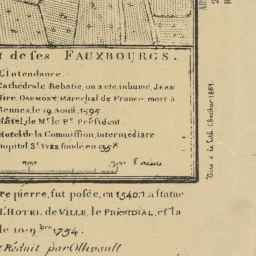 t de ses FAUXBOURGS.
L'Intendance.
Cathédrale Rebatie, on a été inhumé, JEAN
ire, DAUMONT, Maréchal de France mort à
Rennes, le 19. Août, 1595
Hôtel, de Mr. le Pr. Président
Hotel de la Commission, intermédiaire
hopital St. Yves fondé en 1358
re pierre, fut posée, en 1340. La statue
L'HOTEL de VILLE, le PRÉSIDIAL, et la
le 10. 9bre 1754.
Réduit par Ollivault